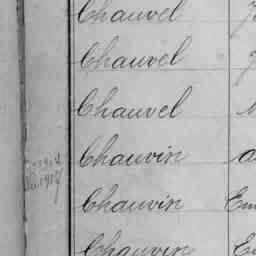 Chauvel
Chauvel
Chauvel
Chauvin
Chauvin Em
Chauvin